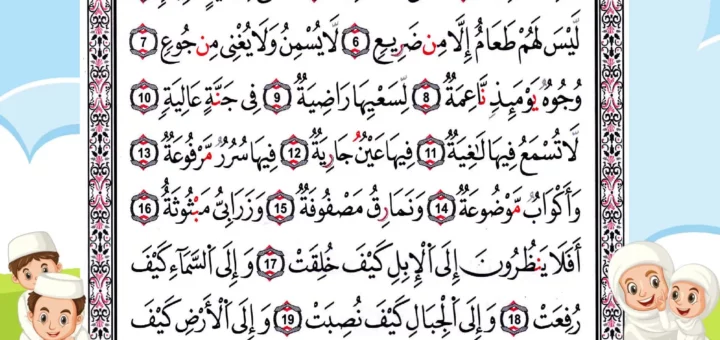 لَيْسَ لَهُمْ طَعَامٌ إِلَّا مِن ضَرِيعٍ 6 لَا يُسْمِنُ وَلَا يُغْنِى مِن جُوعٍ 7
وُجُوهٌ يَوْمَئِذٍ نَّاعِمَةٌ 8 لِّسَعْيِهَا رَاضِيَةٌ 9 فِى جَنَّةٍ عَالِيَةٍ 10
لَّا تُسْمَعُ فِيهَا لَاغِيَةٌ 11 فِيهَا عَيْنٌ جَارِيَةٌ 12 فِيهَا سُرُرٌ مَّرْفُوعَةٌ 13
وَأَكْوَابٌ مَّوْضُوعَةٌ 14 وَنَمَارِقُ مَصْفُوفَةٌ 15 وَزَرَابِىُّ مَبْثُوثَةٌ 16
أَفَلَا يَنظُرُونَ إِلَى الْإِبِلِ كَيْفَ خُلِقَتْ 17 وَإِلَى السَّمَآءِ كَيْفَ
رُفِعَتْ 18 وَإِلَى الْجِبَالِ كَيْفَ نُصِبَتْ 19 وَإِلَى الْأَرْضِ كَيْفَ